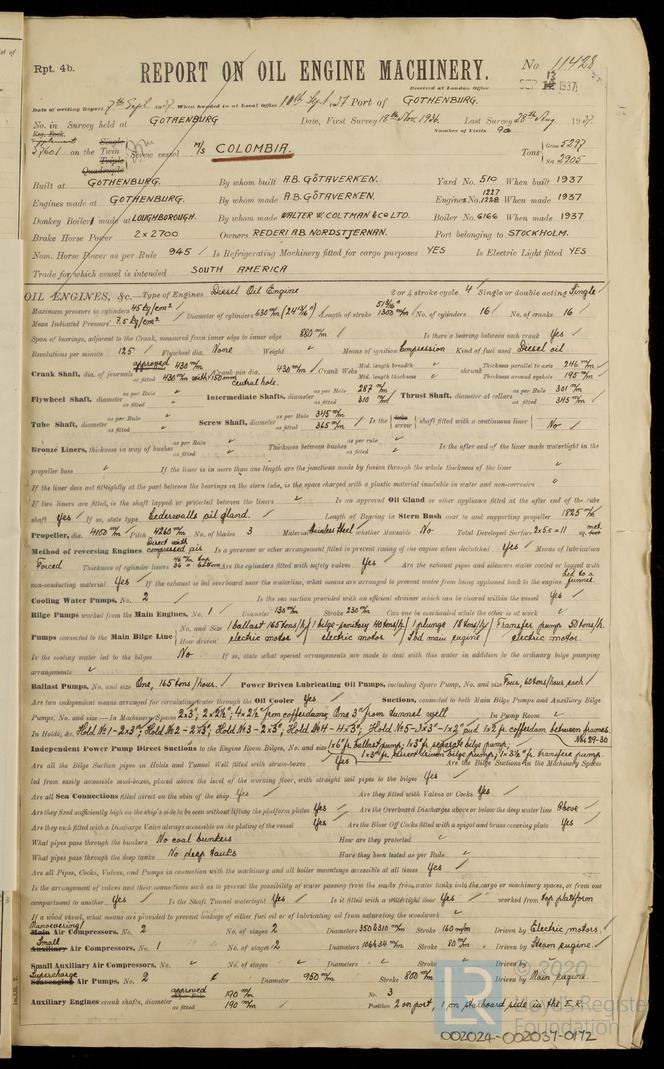 Rpt. 4b.
REPORT ON OIL ENGINE MACHINERY.
No. 11428
Received at London Office
SEP 1937
Date of writing Report 7th Sept. 1937. When handed in at Local Office 10th Sept. 1937 Port of GOTHENBURG.
No. in Survey held at GOTHENBURG Date, First Survey 18th Nov. 1936 Last Survey 28th Aug. 1937.
Reg. Book. Number of Visits 90
37601 on the Single Twin Triple Quadruple Screw vessel M/S COLOMBIA. Tons Gross 5297 Net 2905
Built at GOTHENBURG. By whom built A.B. GÖTAVERKEN. Yard No. 510 When built 1937
Engines made at GOTHENBURG. By whom made A.B. GÖTAVERKEN. Engine No. 1227 1228 When made 1937
Donkey Boiler made at LOUGHBOROUGH. By whom made WALTER W. COLTMAN & CO LTD. Boiler No. 6166 When made 1937
Brake Horse Power 2 x 2700 Owners REDERI A.B. NORDSTJERNAN. Port belonging to STOCKHOLM.
Nom. Horse Power as per Rule 945 Is Refrigerating Machinery fitted for cargo purposes YES Is Electric Light fitted YES
Trade for which vessel is intended SOUTH AMERICA
OIL ENGINES, &c. Type of Engines Diesel Oil Engine 2 or 4 stroke cycle 4 Single or double acting Single
Maximum pressure in cylinders 45 kg/cm² Diameter of cylinders 630 m/m (24 13/16") Length of stroke 51 3/16" 1300 m/m No. of cylinders 16 No. of cranks 16
Mean Indicated Pressure 7.5 kg/cm²
Span of bearings, adjacent to the Crank, measured from inner edge to inner edge 880 m/m Is there a bearing between each crank Yes
Revolutions per minute 125 Flywheel dia. None Weight Means of ignition Compression Kind of fuel used Diesel oil
Crank Shaft, dia. of journals approved 430 m/m as fitted 430 m/m with 150 mm central hole. Crank pin dia. 430 m/m Crank Webs Mid. length breadth Mid. length thickness shrunk Thickness parallel to axis 246 m/m Thickness around eyehole 195 m/m
Flywheel Shaft, diameter as per Rule as fitted Intermediate Shafts, diameter as per Rule 287 m/m as fitted 310 m/m Thrust Shaft, diameter at collars as per Rule 301 m/m as fitted 345 m/m
Tube Shaft, diameter as per Rule as fitted Screw Shaft, diameter as per Rule 345 m/m as fitted 365 m/m Is the tube screw shaft fitted with a continuous liner No
Bronze Liners, thickness in way of bushes as per Rule as fitted Thickness between bushes as per rule as fitted Is the after end of the liner made watertight in the
propeller boss If the liner is in more than one length are the junctions made by fusion through the whole thickness of the liner
If the liner does not fit tightly at the part between the bearings in the stern tube, is the space charged with a plastic material insoluble in water and non-corrosive
If two liners are fitted, is the shaft lapped or protected between the liners Is an approved Oil Gland or other appliance fitted at the after end of the tube
shaft Yes If so, state type Cederwalls oil gland. Length of Bearing in Stern Bush next to and supporting propeller 1825 m/m
Propeller, dia. 4100 m/m Pitch 4260 m/m No. of blades 3 Material Stainless steel whether Moveable No Total Developed Surface 2 x 5.5 = 11 met. sq. feet
Method of reversing Engines Direct with compressed air Is a governor or other arrangement fitted to prevent racing of the engine when declutched Yes Means of lubrication
Forced Thickness of cylinder liners 46 m/m top 36 " bottom Are the cylinders fitted with safety valves Yes Are the exhaust pipes and silencers water cooled or lagged with
non-conducting material Yes If the exhaust is led overboard near the waterline, what means are arranged to prevent water being syphoned back to the engine Led to a funnel.
Cooling Water Pumps, No. 2 Is the sea suction provided with an efficient strainer which can be cleared within the vessel Yes
Bilge Pumps worked from the Main Engines, No. 1 Diameter 130 m/m Stroke 230 m/m Can one be overhauled while the other is at work
Pumps connected to the Main Bilge Line No. and Size 1 ballast 165 tons/h, 1 bilge-sanitary 40 tons/h, 1 plunge 18 tons/h, Transfer pump 50 tons/h.
How driven electric motor electric motor Led main engine electric motor.
Is the cooling water led to the bilges No If so, state what special arrangements are made to deal with this water in addition to the ordinary bilge pumping
arrangements
Ballast Pumps, No. and size One, 165 tons/hour. Power Driven Lubricating Oil Pumps, including Spare Pump, No. and size Four, 60 tons/hour each
Are two independent means arranged for circulating water through the Oil Cooler Yes Suctions, connected to both Main Bilge Pumps and Auxiliary Bilge
Pumps, No. and size:—In Machinery Spaces 2 x 3", 2 x 2½", 4 x 2½" from cofferdams, One 3" from tunnel well In Pump Room
In Holds, &c. Hold No 1 - 2 x 3", Hold No 2 - 2 x 3", Hold No 3 - 2 x 3", Hold No 4 - 4 x 3", Hold No 5 - 3 x 3" - 1 x 2" and 1 x 2" fr. cofferdam between frames. Nos 29-30
Independent Power Pump Direct Suctions to the Engine Room Bilges, No. and size 1 x 6" fr. ballast pump, 1 x 3" fr. separate bilge pump,
1 x 3" fr. recent driven bilge pump, 1 x 3½" fr. transfere pump.
Are all the Bilge Suction pipes in Holds and Tunnel Well fitted with strum-boxes Yes Are the Bilge Suctions in the Machinery Spaces
led from easily accessible mud-boxes, placed above the level of the working floor, with straight tail pipes to the bilges Yes
Are all Sea Connections fitted direct on the skin of the ship Yes Are they fitted with Valves or Cocks Yes
Are they fixed sufficiently high on the ship's side to be seen without lifting the platform plates Yes Are the Overboard Discharges above or below the deep water line Above
Are they each fitted with a Discharge Valve always accessible on the plating of the vessel Yes Are the Blow Off Cocks fitted with a spigot and brass covering plate Yes
What pipes pass through the bunkers No coal bunkers How are they protected
What pipes pass through the deep tanks No deep tanks Have they been tested as per Rule
Are all Pipes, Cocks, Valves, and Pumps in connection with the machinery and all boiler mountings accessible at all times Yes
Is the arrangement of valves and their connections such as to prevent the possibility of water passing from the sea or from water tanks into the cargo or machinery spaces, or from one
compartment to another Yes Is the Shaft Tunnel watertight Yes Is it fitted with a watertight door Yes worked from top platform
If a wood vessel, what means are provided to prevent leakage of either fuel oil or of lubricating oil from saturating the woodwork
Manoeuvering Main Air Compressors, No. 2 No. of stages 2 Diameters 350 & 310 m/m Stroke 160 m/m Driven by Electric motors.
Small Auxiliary Air Compressors, No. 1 No. of stages 2 Diameters 106 & 34 m/m Stroke 80 m/m Driven by Steam engine.
Small Auxiliary Air Compressors, No. No. of stages Diameters Stroke Driven by
Supercharge Scavenging Air Pumps, No. 2 Diameter 950 m/m Stroke 800 m/m Driven by Main engine.
Auxiliary Engines crank shafts, diameter approved as per Rule 190 m/m as fitted 190 m/m No. 3 Position 2 on port, 1 on starboard side in the E.R.
© 2020
LR
Lloyd's Register
Foundation
002024-002037-0172